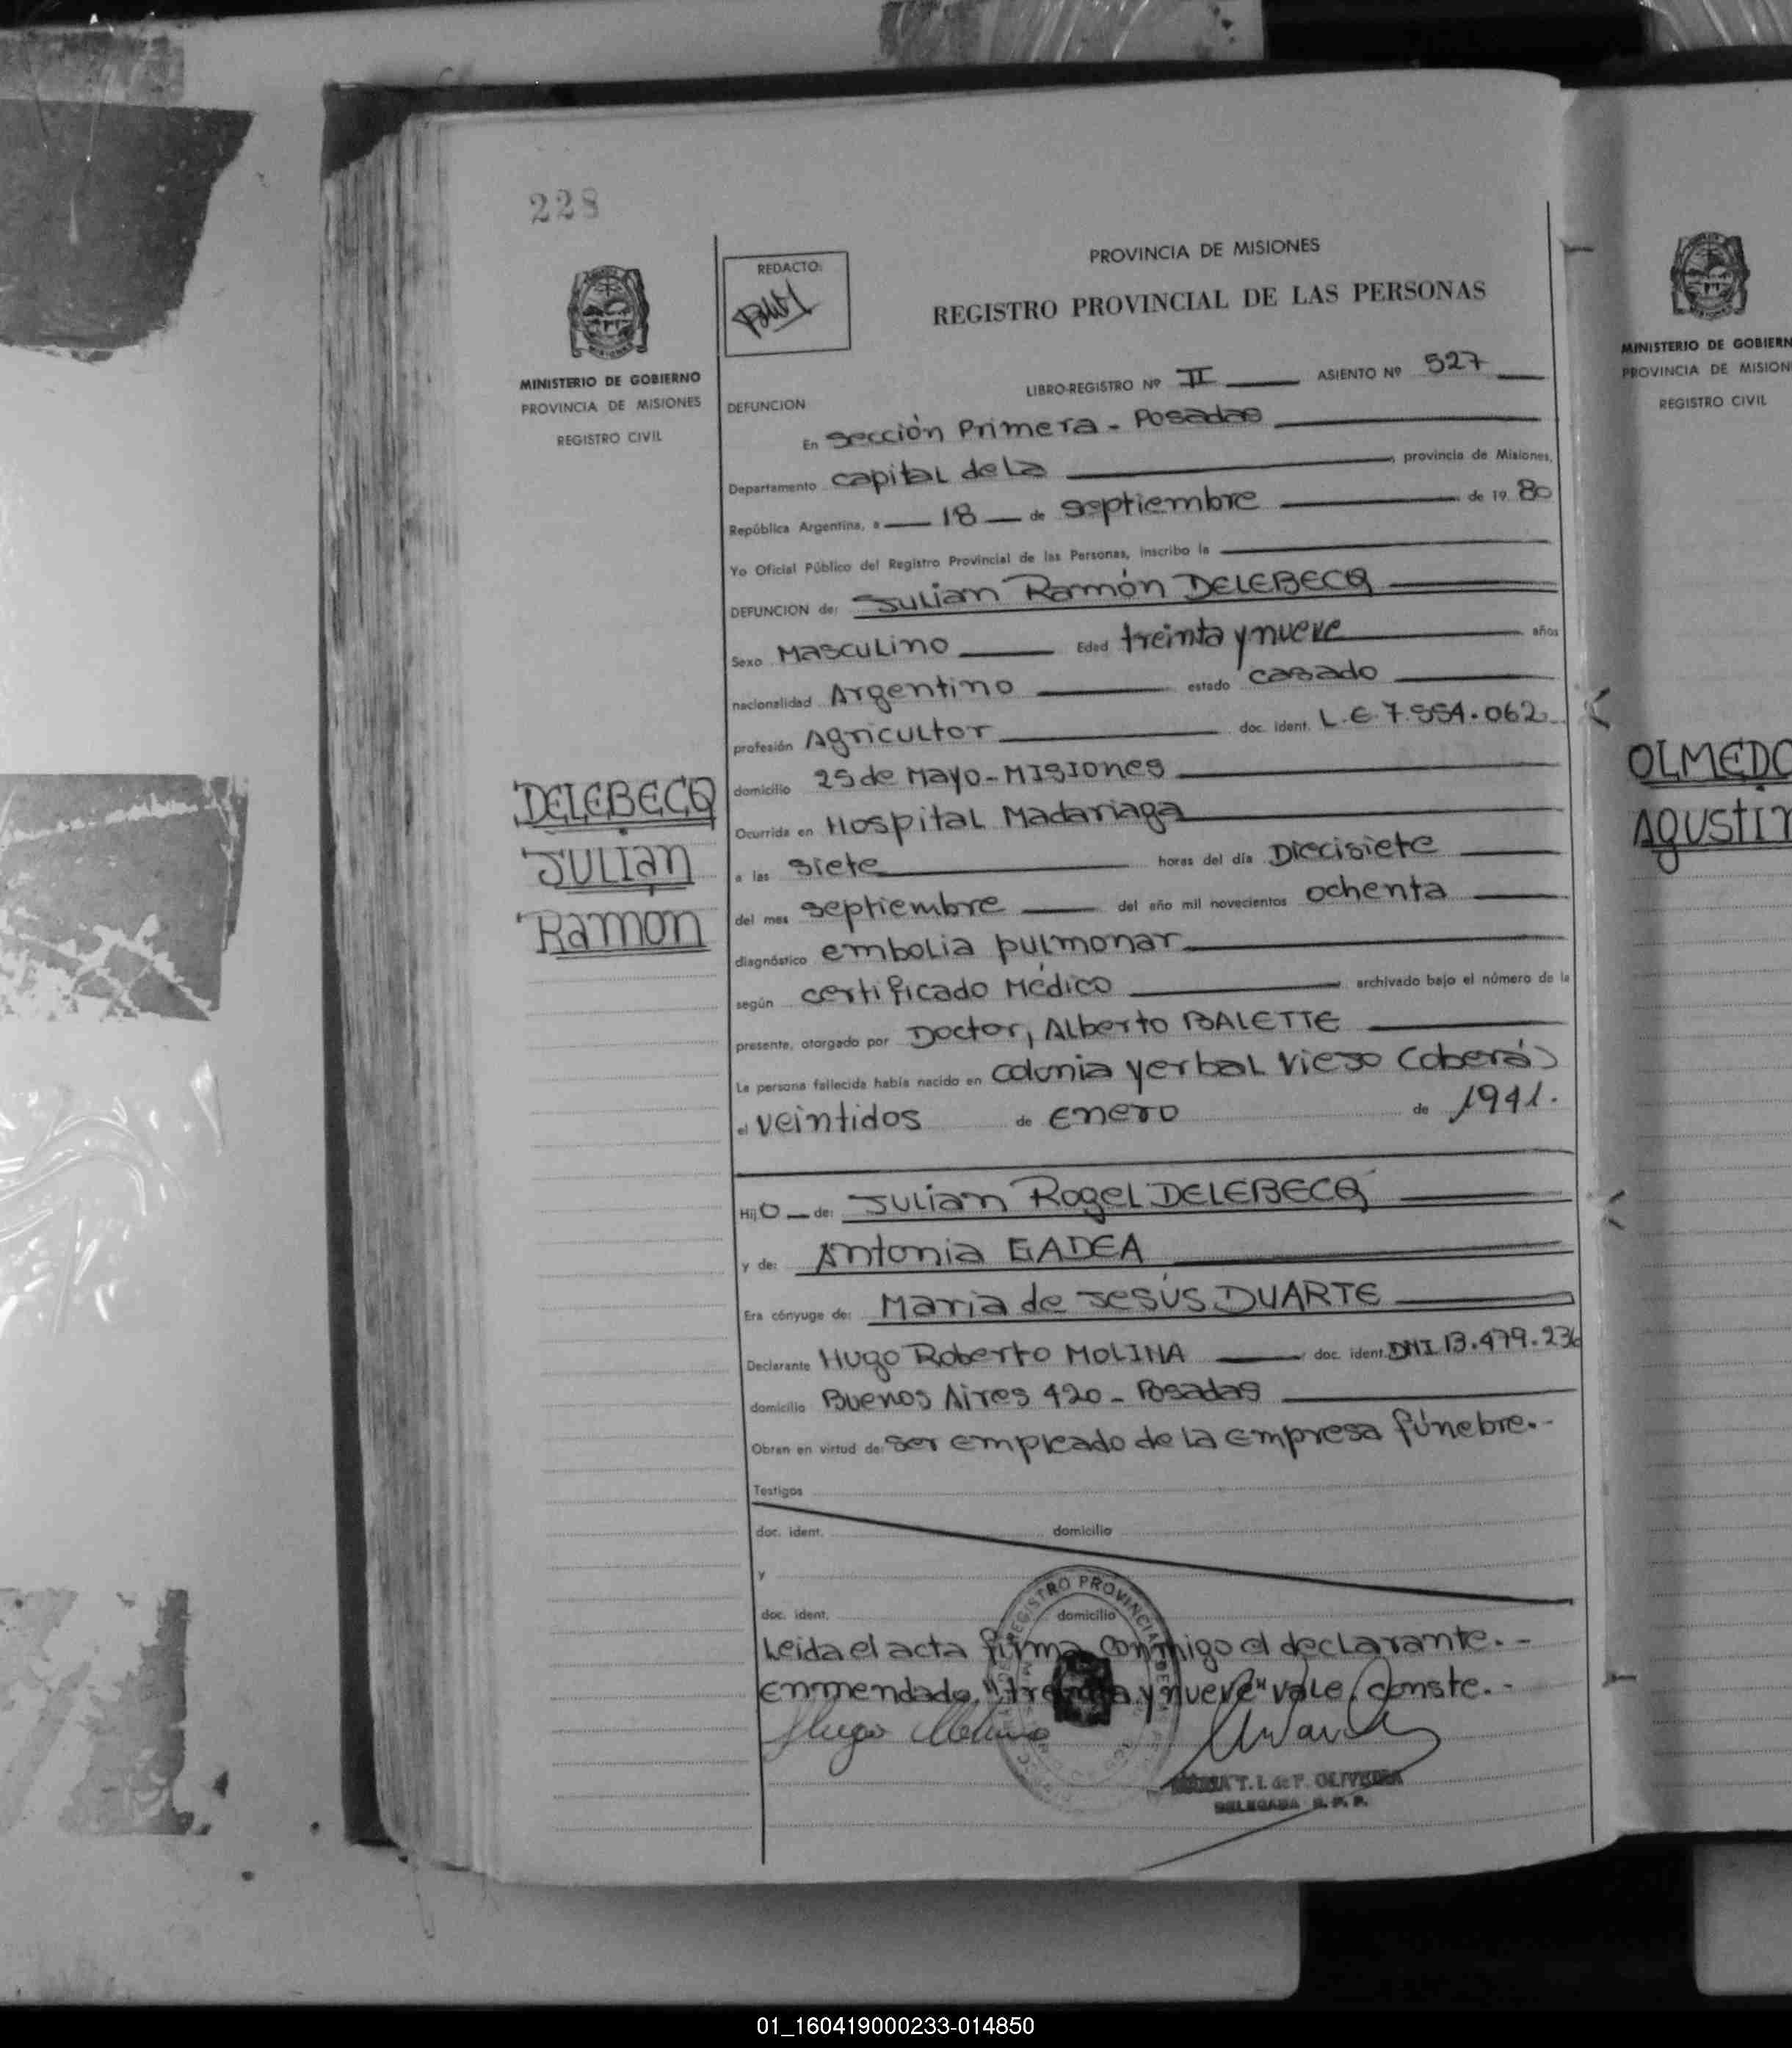 228
MINISTERIO DE GOBIERNO
PROVINCIA DE MISIONES
REGISTRO CIVIL
REDACTO:
PROVINCIA DE MISIONES
REGISTRO PROVINCIAL DE LAS PERSONAS
LIBRO-REGISTRO Nº II ASIENTO Nº 527
DEFUNCION
En Sección Primera - Posadas
Departamento Capital de la provincia de Misiones,
República Argentina, a 18 de septiembre de 19 80
Yo Oficial Público del Registro Provincial de las Personas, inscribo la
DEFUNCION de: Julian Ramón DELEBECQ
Sexo Masculino Edad treinta y nueve años
nacionalidad Argentino estado casado
profesión Agricultor doc. ident. L.E. 7.554.062
domicilio 25 de Mayo - Misiones
Ocurrida en Hospital Madariaga
a las siete horas del día Diecisiete
del mes septiembre del año mil novecientos ochenta
diagnóstico embolia pulmonar
según certificado Médico archivado bajo el número de la
presente, otorgado por Doctor, Alberto BALETTE
La persona fallecida había nacido en Colonia Yerbal Viejo (Oberá)
el veintidos de Enero de 1941.
Hijo de: Julian Rogel DELEBECQ
y de: Antonia GADEA
Era cónyuge de: Maria de Jesús DUARTE
Declarante Hugo Roberto MOLINA doc. ident. DNI 13.479.236
domicilio Buenos Aires 420 - Posadas
Obran en virtud de: ser empleado de la empresa fúnebre.-
Testigos
doc. ident. domicilio
y
doc. ident. domicilio
Leida el acta firma conmigo el declarante.-
Enmendado "treinta y nueve" vale. Conste.-
Hugo Molina
T. I. de P. OLIVEIRA
DELEGADA R. P. P.
REGISTRO PROVINCIAL DE
DELEBECQ
JULIAN
RAMON
MINISTERIO DE GOBIERN
PROVINCIA DE MISION
REGISTRO CIVIL
OLMEDO
AGUSTIN
01_160419000233-014850